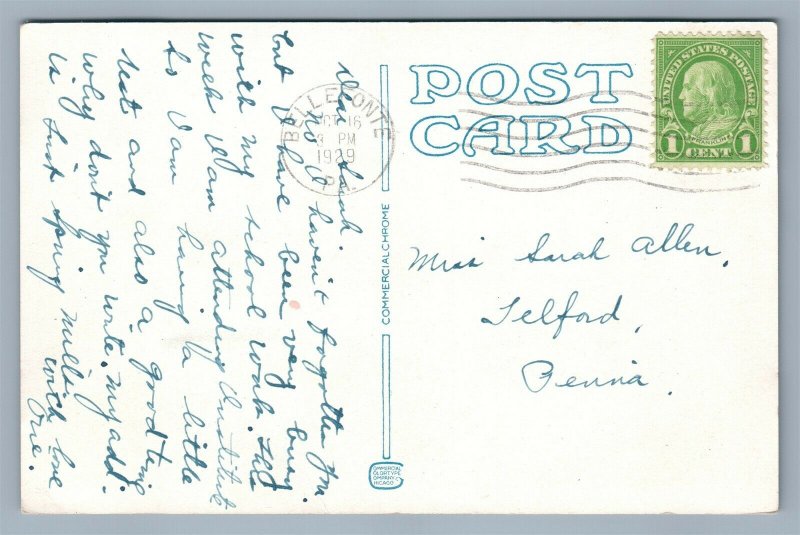 Dear Sarah:
No I haven't forgotten you
but I have been very busy
with my school work. This
week I am attending Institute
so I am having a little
rest and also a good time
Why don't you write. My add.
is just Spring Mills.
with love
One.
BELLEFONTE
OCT 16
3 PM
1929
PA.
COMMERCIALCHROME
COMMERCIAL
COLORTYPE
COMPANY
CHICAGO
POST
CARD
UNITED STATES POSTAGE
FRANKLIN
1 CENT 1
Miss Sarah Allen,
Telford,
Penna.